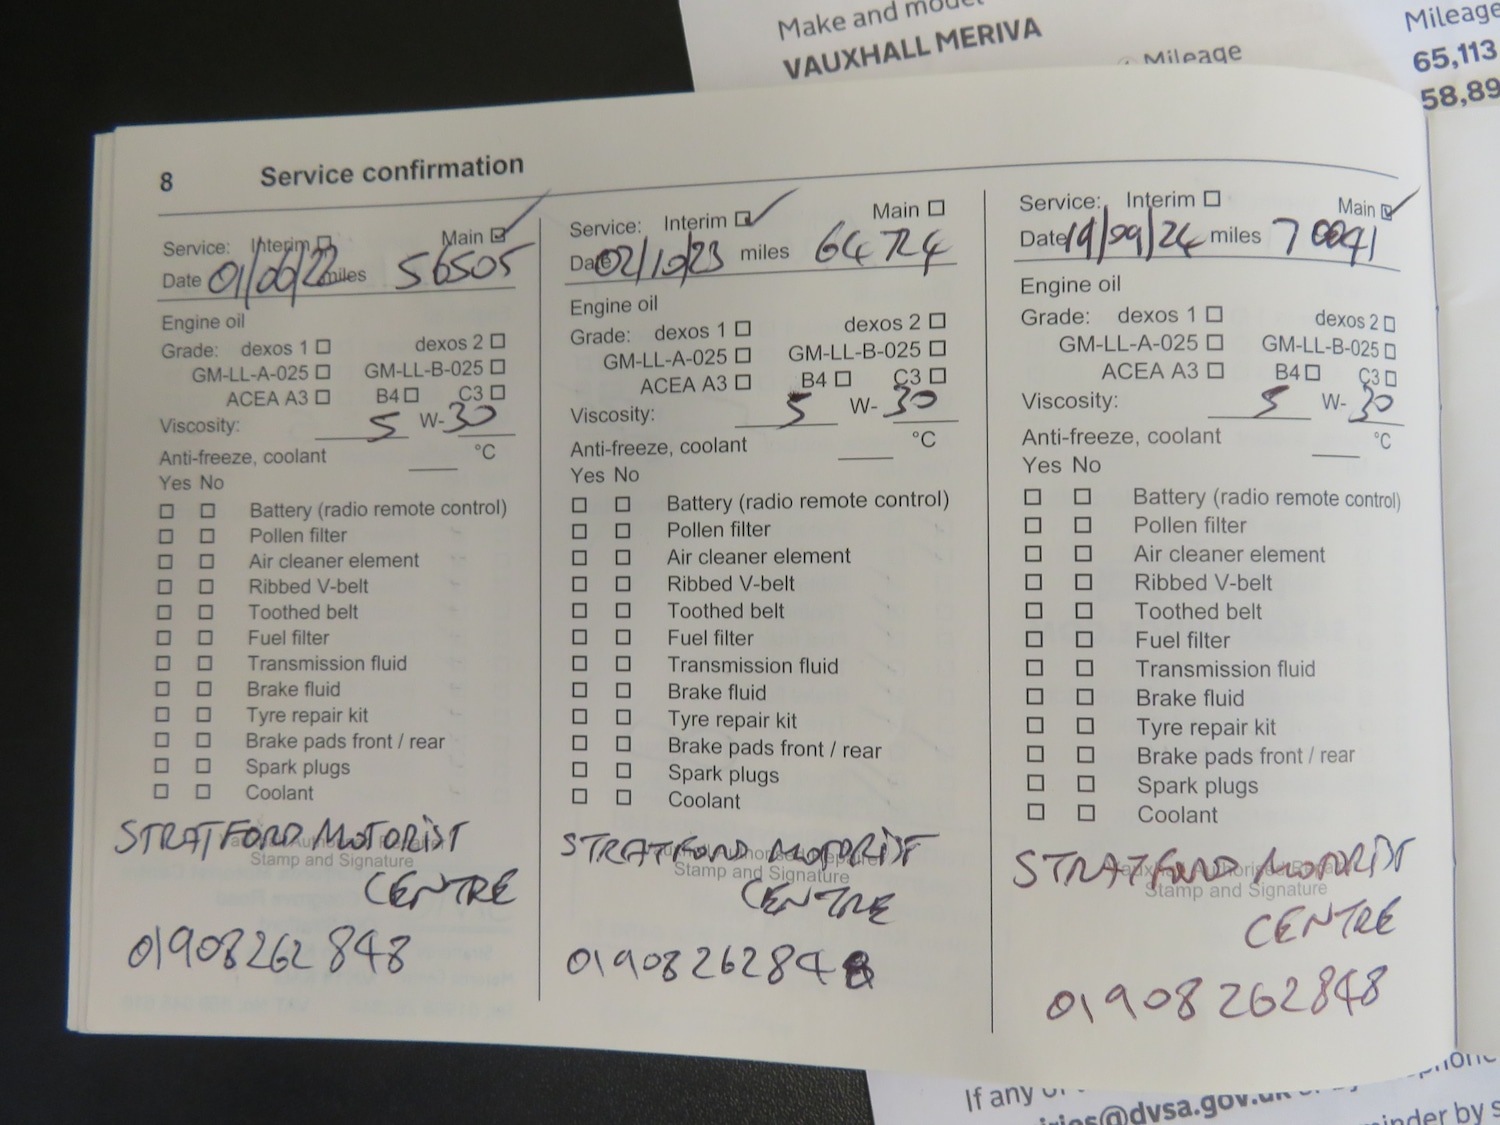 Make and model
VAUXHALL MERIVA
Mileage
Mileage
65,113
58,89
8 Service confirmation
Service: Interim Main
Date 01/06/22 miles 56505
Engine oil
Grade: dexos 1 dexos 2
GM-LL-A-025 GM-LL-B-025
ACEA A3 B4 C3
Viscosity: 5 W-30
Anti-freeze, coolant °C
Yes No
Battery (radio remote control)
Pollen filter
Air cleaner element
Ribbed V-belt
Toothed belt
Fuel filter
Transmission fluid
Brake fluid
Tyre repair kit
Brake pads front / rear
Spark plugs
Coolant
STRATFORD MOTORIST
Stamp and Signature
CENTRE
01908262848
Service: Interim Main
Date 02/10/23 miles 64724
Engine oil
Grade: dexos 1 dexos 2
GM-LL-A-025 GM-LL-B-025
ACEA A3 B4 C3
Viscosity: 5 W-30
Anti-freeze, coolant °C
Yes No
Battery (radio remote control)
Pollen filter
Air cleaner element
Ribbed V-belt
Toothed belt
Fuel filter
Transmission fluid
Brake fluid
Tyre repair kit
Brake pads front / rear
Spark plugs
Coolant
STRATFORD MOTORIST
Stamp and Signature
CENTRE
01908262848
Service: Interim Main
Date 19/09/24 miles 70041
Engine oil
Grade: dexos 1 dexos 2
GM-LL-A-025 GM-LL-B-025
ACEA A3 B4 C3
Viscosity: 5 W-30
Anti-freeze, coolant °C
Yes No
Battery (radio remote control)
Pollen filter
Air cleaner element
Ribbed V-belt
Toothed belt
Fuel filter
Transmission fluid
Brake fluid
Tyre repair kit
Brake pads front / rear
Spark plugs
Coolant
STRATFORD MOTORIST
Vauxhall Authorised Repairer
Stamp and Signature
CENTRE
01908 262848
If any
@dvsa.gov.uk
by s